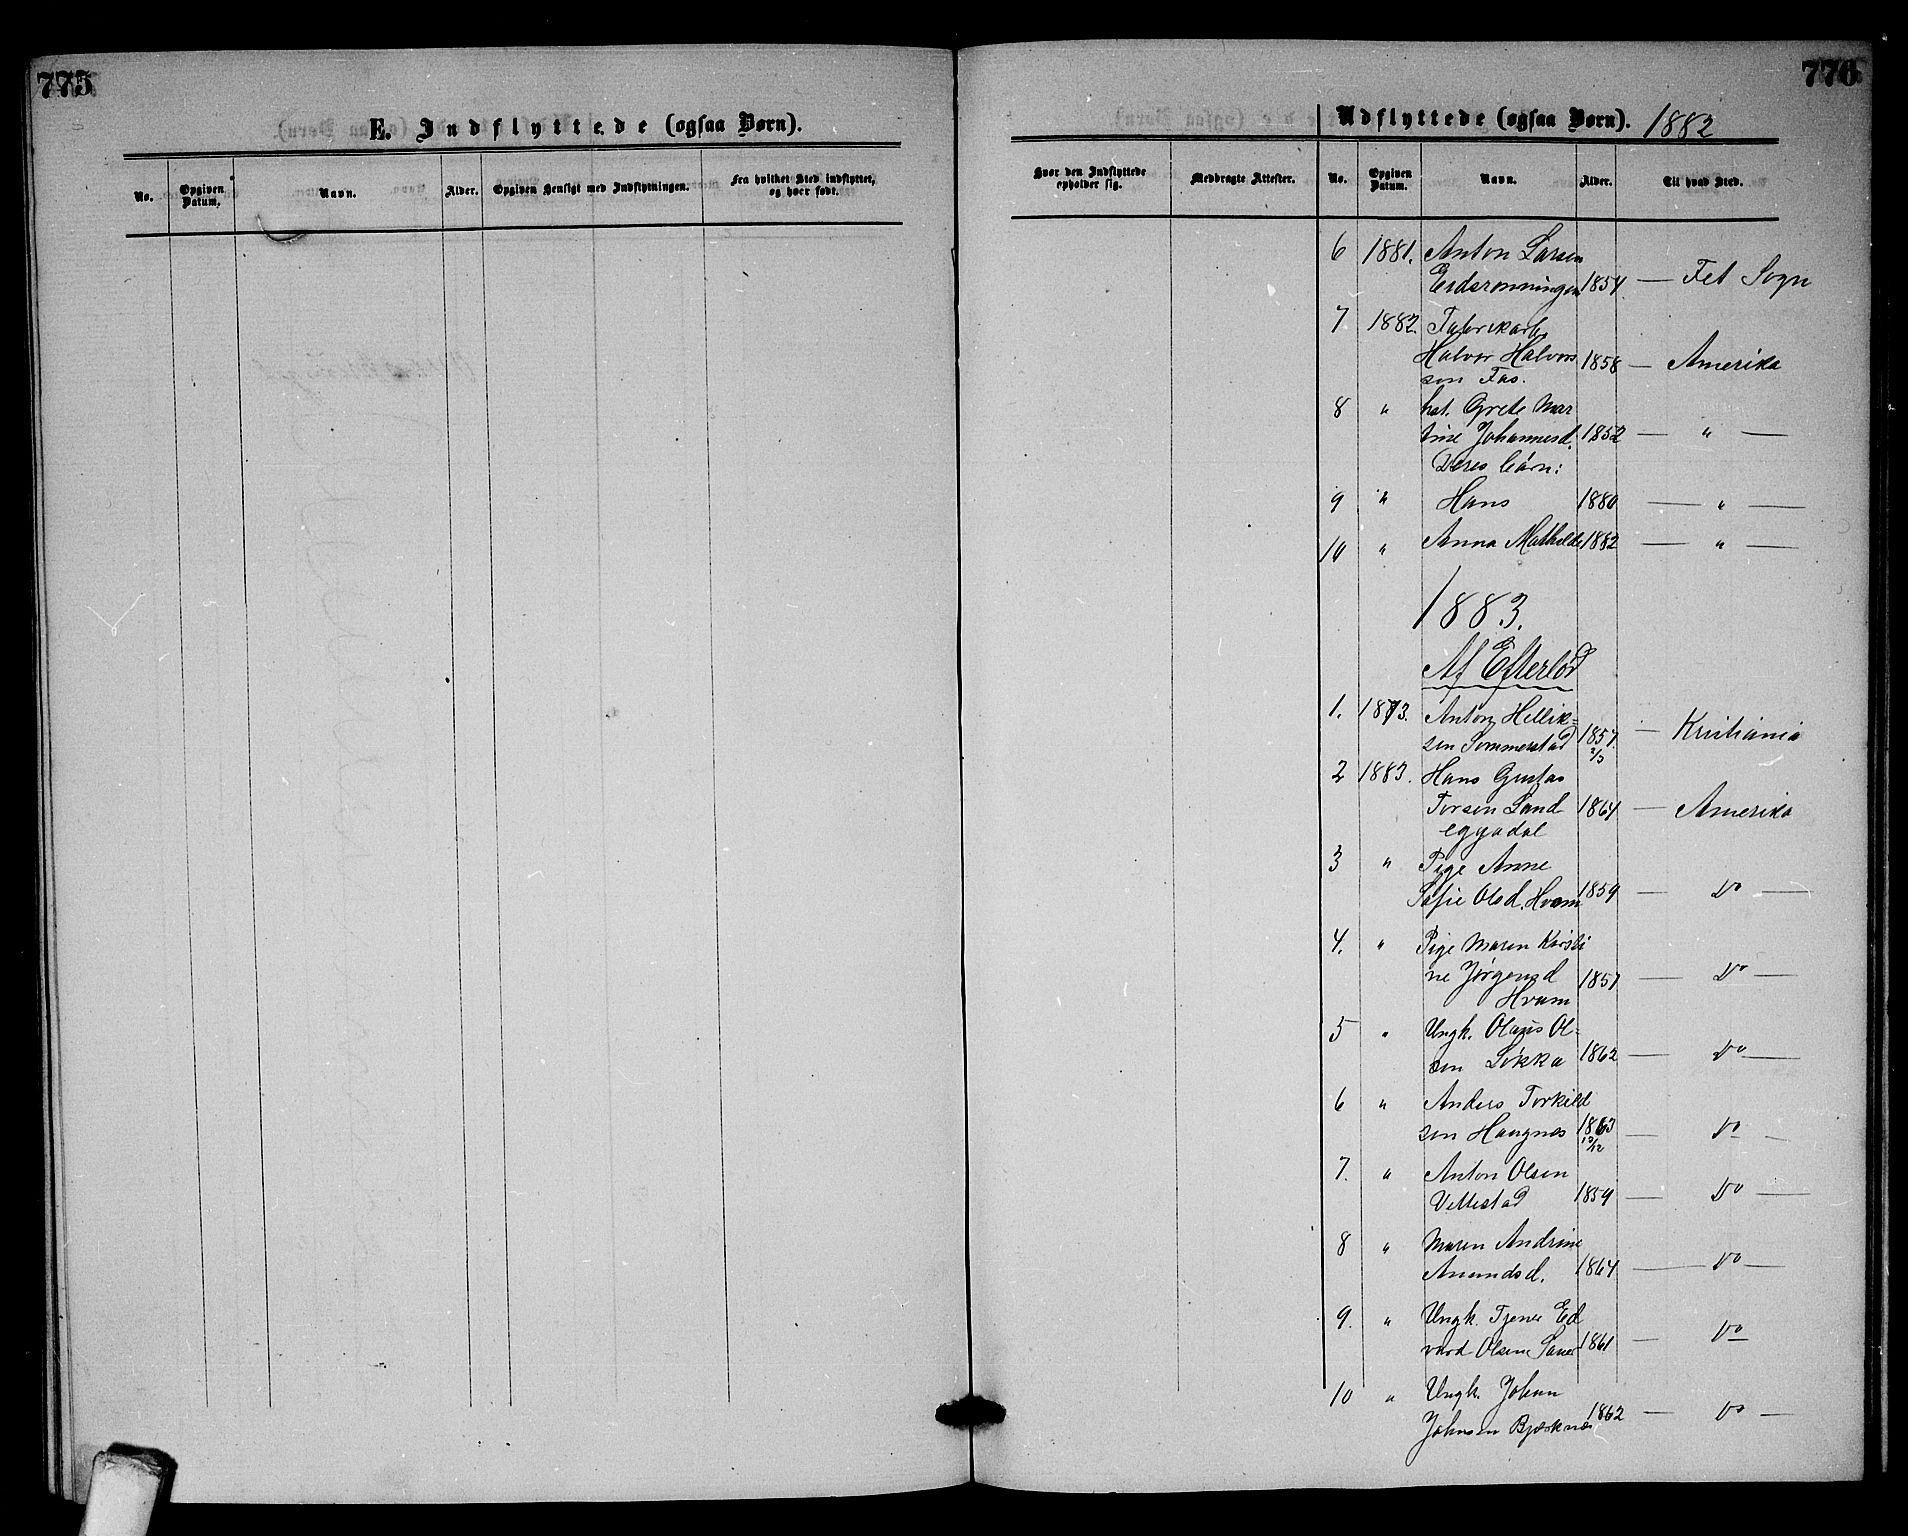 775
E. Indflyttede (ogsaa Børn).
No.
Opgiven Datum.
Navn.
Alder.
Opgiven Hensigt med Indflytningen.
Fra hvilket Sted indflyttet, og hvor født.
776
Udflyttede (ogsaa Børn). 1882
Hvor den Indflyttede opholder sig.
Medbragte Attester.
No.
Opgiven Datum.
Navn.
Alder.
Til hvad Sted.
6 1881. Anton Larsen
Eidsrønningen 1854 — Fet Sogn
7 1882. Fabrikarb.
Halvor Halvor
sen Fas. 1858 — Amerika
8 " hst. Grete Mar
tine Johannesd. 1852 — " —
Deres børn:
9 " Hans 1880 — " —
10 " Anna Mathilde 1882 — " —
1883.
Af Efterløp
1. 1873. Anton Hellik-
sen Sommerstad 1857. 2/3 — Kristiania
2 1883. Hans Gustav
Torsen Land 1864 — Amerika
eggadal
3 " Pige Anne
Sofie Olsd. Hvam 1859 — Do —
4. " Pige Maren Kirsti
ne Jørgensd 1857 — Do —
Hvam
5 " Ungk. Olaus Ol-
sen Løkka 1862 — Do —
6 " Anders Torkild
sen Haugnes 1863 — Do —
7. " Anton Olsen
Vettestad 1859 — Do —
8 " Maren Andrine
Amundsd. 1864 — Do —
9. " Ungk. Tjener Ed
vard Olsen 1861 — Do
10 " Ungk. Johan
Johnsen Bjerknes 1862 — Do —